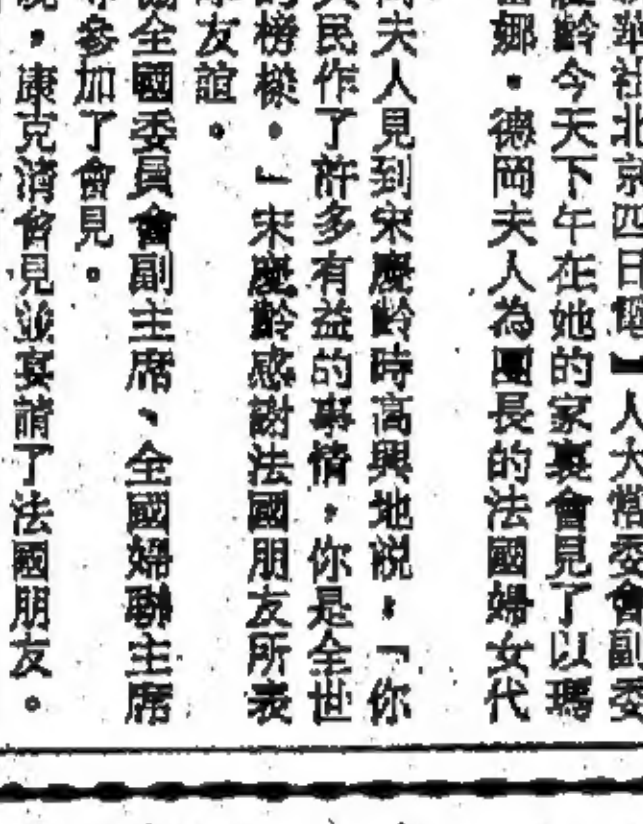 華社北京四日電】人大常委會副委
齡今天下午在她的家裏會見了以瑪
娜·德岡夫人為團長的法國婦女代
夫人見到宋慶齡時高興地説，「你
民作了許多有益的事情，你是全世
的榜樣。」宋慶齡感謝法國朋友所表
友誼。
全國委員會副主席、全國婦聯主席
參加了會見。
，康克清會見並宴請了法國朋友。